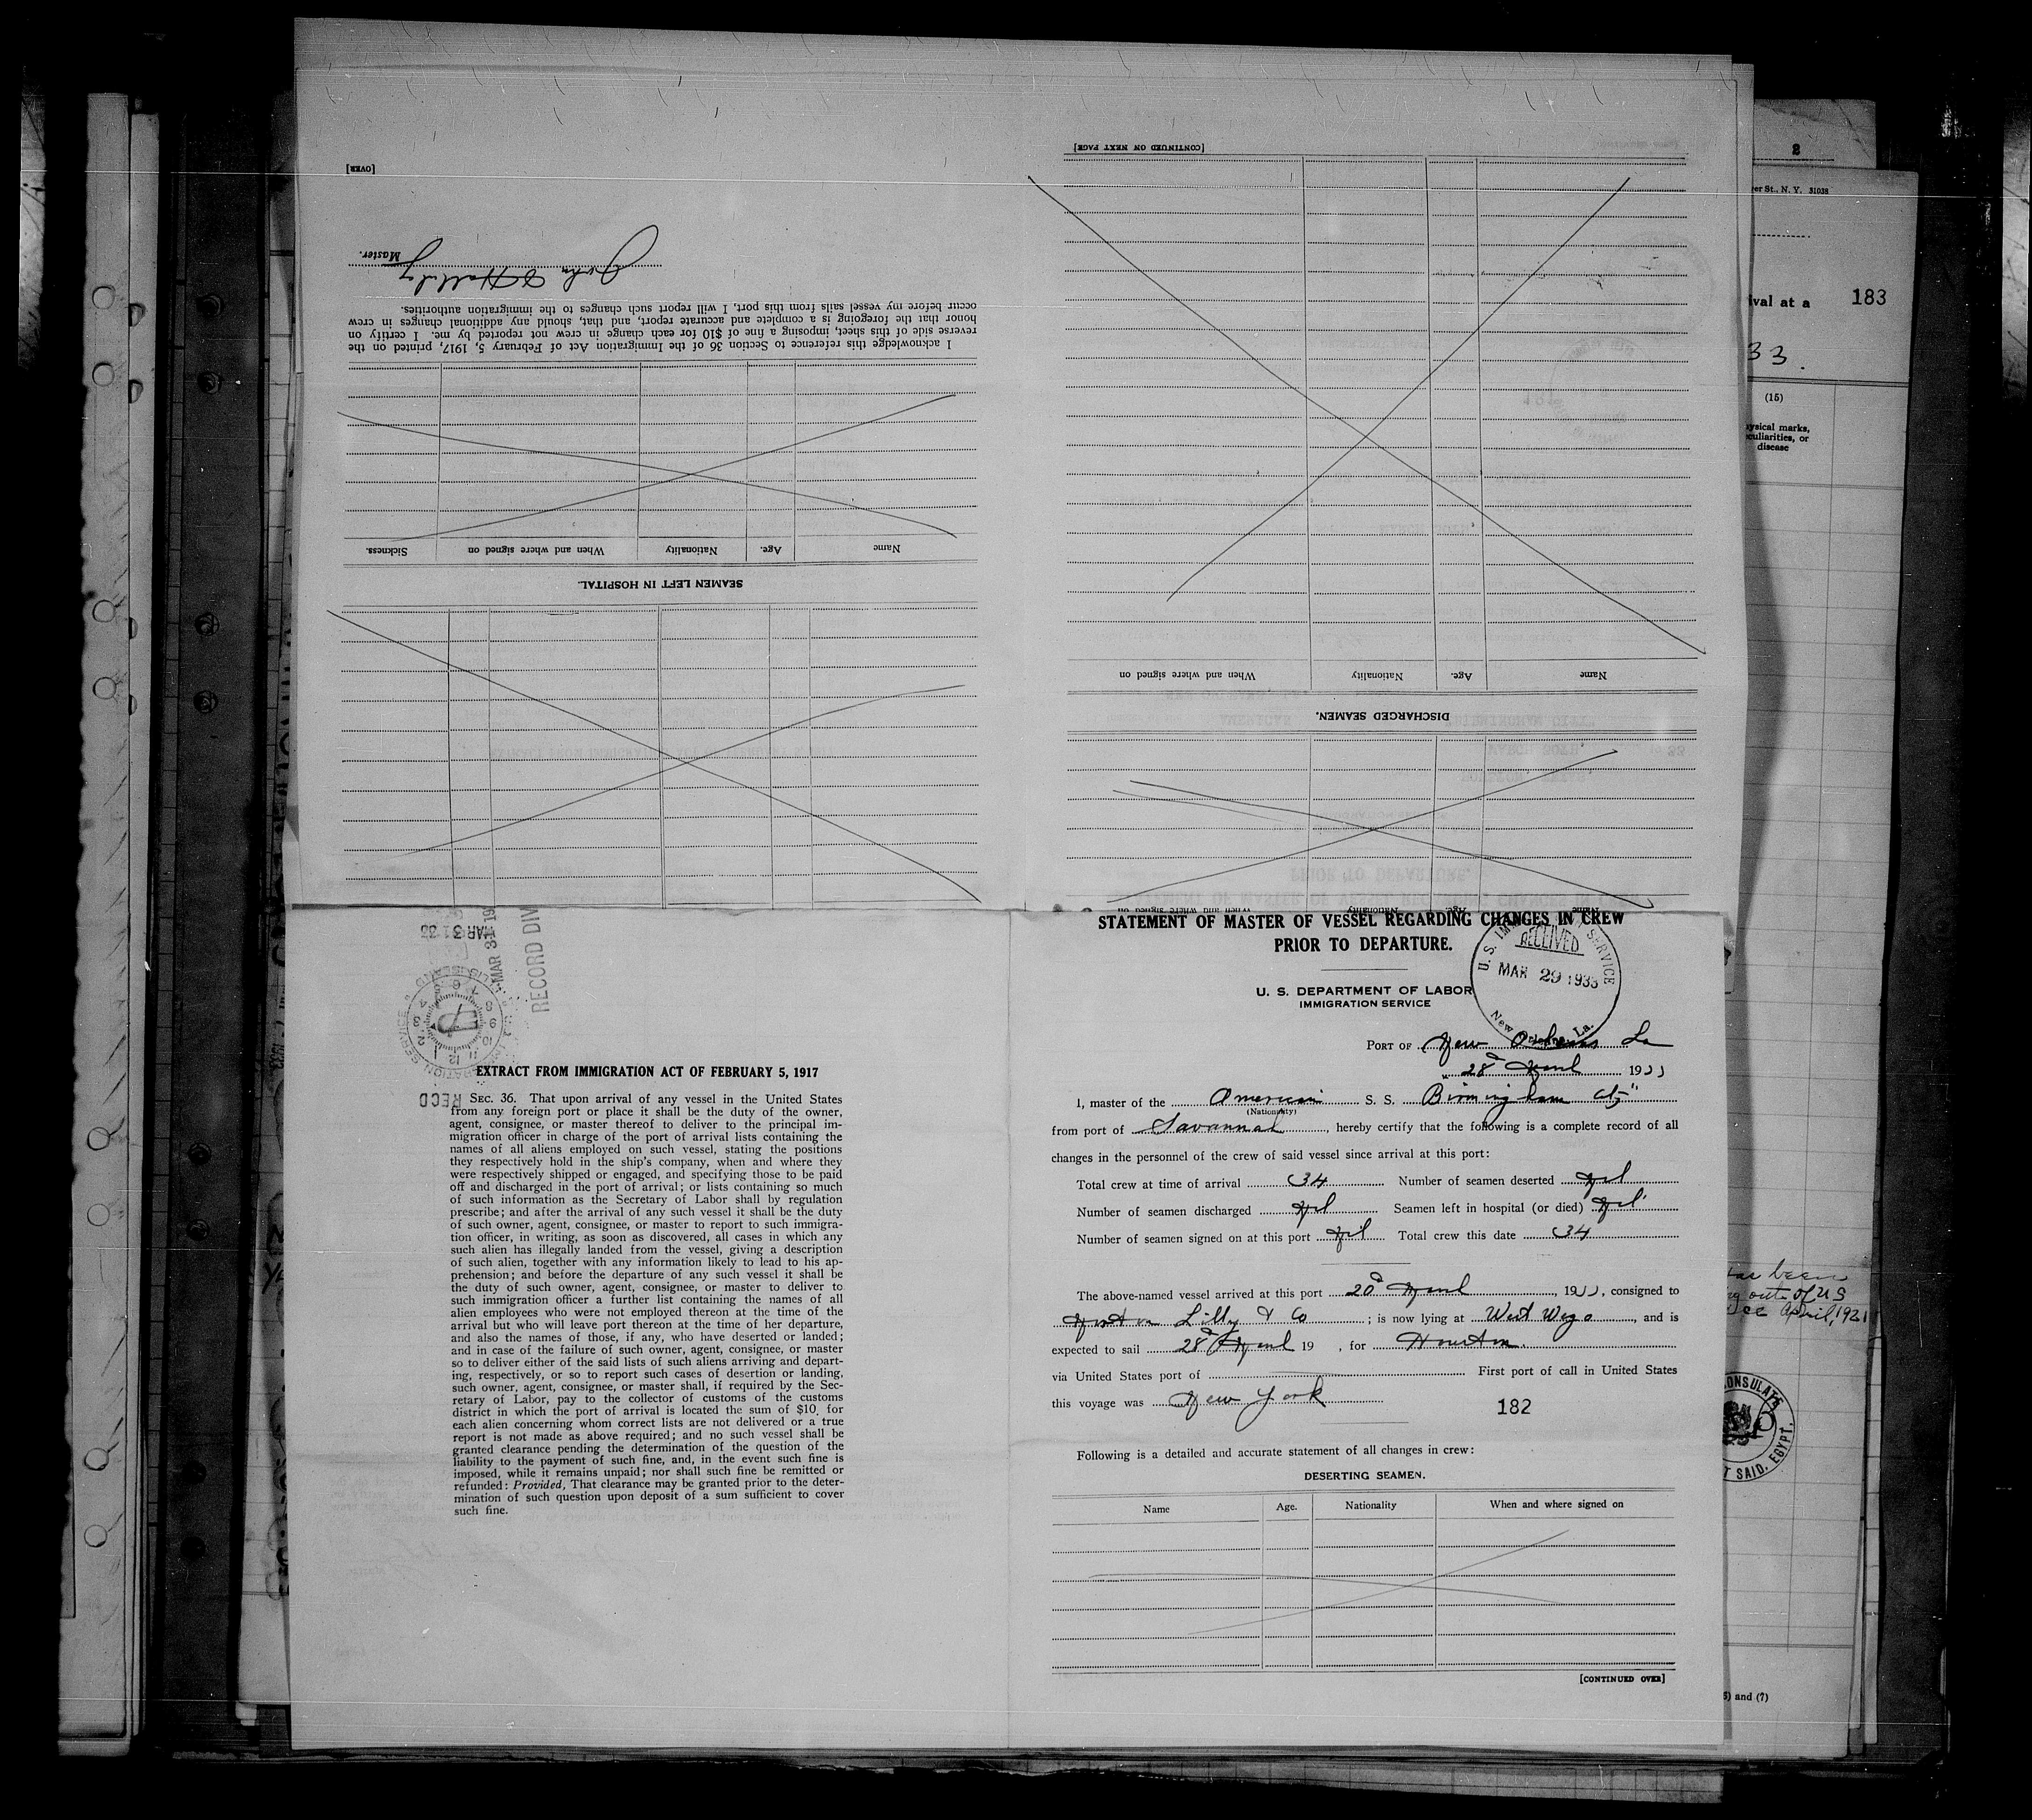 [OVER]
John Halliday
Master.
I acknowledge this reference to Section 36 of the Immigration Act of February 5, 1917, printed on the
reverse side of this sheet, imposing a fine of $10 for each change in crew not reported by me. I certify on
honor that the foregoing is a complete and accurate report, and that, should any additional changes in crew
occur before my vessel sails from this port, I will report such changes to the immigration authorities.
Name Age. Nationality When and where signed on Sickness.
SEAMEN LEFT IN HOSPITAL.
[CONTINUED ON NEXT PAGE]
Name Age. Nationality When and where signed on
DISCHARGED SEAMEN.
Name Age. Nationality When and where signed on
MAR 31 33
MAR 31 19
RECORD DIV
RECD
EXTRACT FROM IMMIGRATION ACT OF FEBRUARY 5, 1917
SEC. 36. That upon arrival of any vessel in the United States
from any foreign port or place it shall be the duty of the owner,
agent, consignee, or master thereof to deliver to the principal im-
migration officer in charge of the port of arrival lists containing the
names of all aliens employed on such vessel, stating the positions
they respectively hold in the ship's company, when and where they
were respectively shipped or engaged, and specifying those to be paid
off and discharged in the port of arrival; or lists containing so much
of such information as the Secretary of Labor shall by regulation
prescribe; and after the arrival of any such vessel it shall be the duty
of such owner, agent, consignee, or master to report to such immigra-
tion officer, in writing, as soon as discovered, all cases in which any
such alien has illegally landed from the vessel, giving a description
of such alien, together with any information likely to lead to his ap-
prehension; and before the departure of any such vessel it shall be
the duty of such owner, agent, consignee, or master to deliver to
such immigration officer a further list containing the names of all
alien employees who were not employed thereon at the time of the
arrival but who will leave port thereon at the time of her departure,
and also the names of those, if any, who have deserted or landed;
and in case of the failure of such owner, agent, consignee, or master
so to deliver either of the said lists of such aliens arriving and depart-
ing, respectively, or so to report such cases of desertion or landing,
such owner, agent, consignee, or master shall, if required by the Sec-
retary of Labor, pay to the collector of customs of the customs
district in which the port of arrival is located the sum of $10 for
each alien concerning whom correct lists are not delivered or a true
report is not made as above required; and no such vessel shall be
granted clearance pending the determination of the question of the
liability to the payment of such fine, and, in the event such fine is
imposed, while it remains unpaid; nor shall such fine be remitted or
refunded: Provided, That clearance may be granted prior to the deter-
mination of such question upon deposit of a sum sufficient to cover
such fine.
STATEMENT OF MASTER OF VESSEL REGARDING CHANGES IN CREW
PRIOR TO DEPARTURE.
U. S. DEPARTMENT OF LABOR
IMMIGRATION SERVICE
RECEIVED
MAR 29 1933
New Orleans, La.
PORT OF New Orleans La
28th March 1933
I, master of the American S. S. Birmingham City
(Nationality)
from port of Savannah, hereby certify that the following is a complete record of all
changes in the personnel of the crew of said vessel since arrival at this port:
Total crew at time of arrival 34 Number of seamen deserted Nil
Number of seamen discharged Nil Seamen left in hospital (or died) Nil
Number of seamen signed on at this port Nil Total crew this date 34
The above-named vessel arrived at this port 20th March, 1933, consigned to
Norton Lilly & Co; is now lying at West Wego, and is
expected to sail 28th March 19 , for Houston.
via United States port of First port of call in United States
this voyage was New York
182
Following is a detailed and accurate statement of all changes in crew:
DESERTING SEAMEN.
Name Age. Nationality When and where signed on
[CONTINUED OVER]
2
er St., N. Y. 31038
ival at a 183
33.
(15)
ysical marks,
culiarities, or
disease
has been
out of US
April, 1921
CONSULATE
T SAID, EGYPT.
5) and (7)